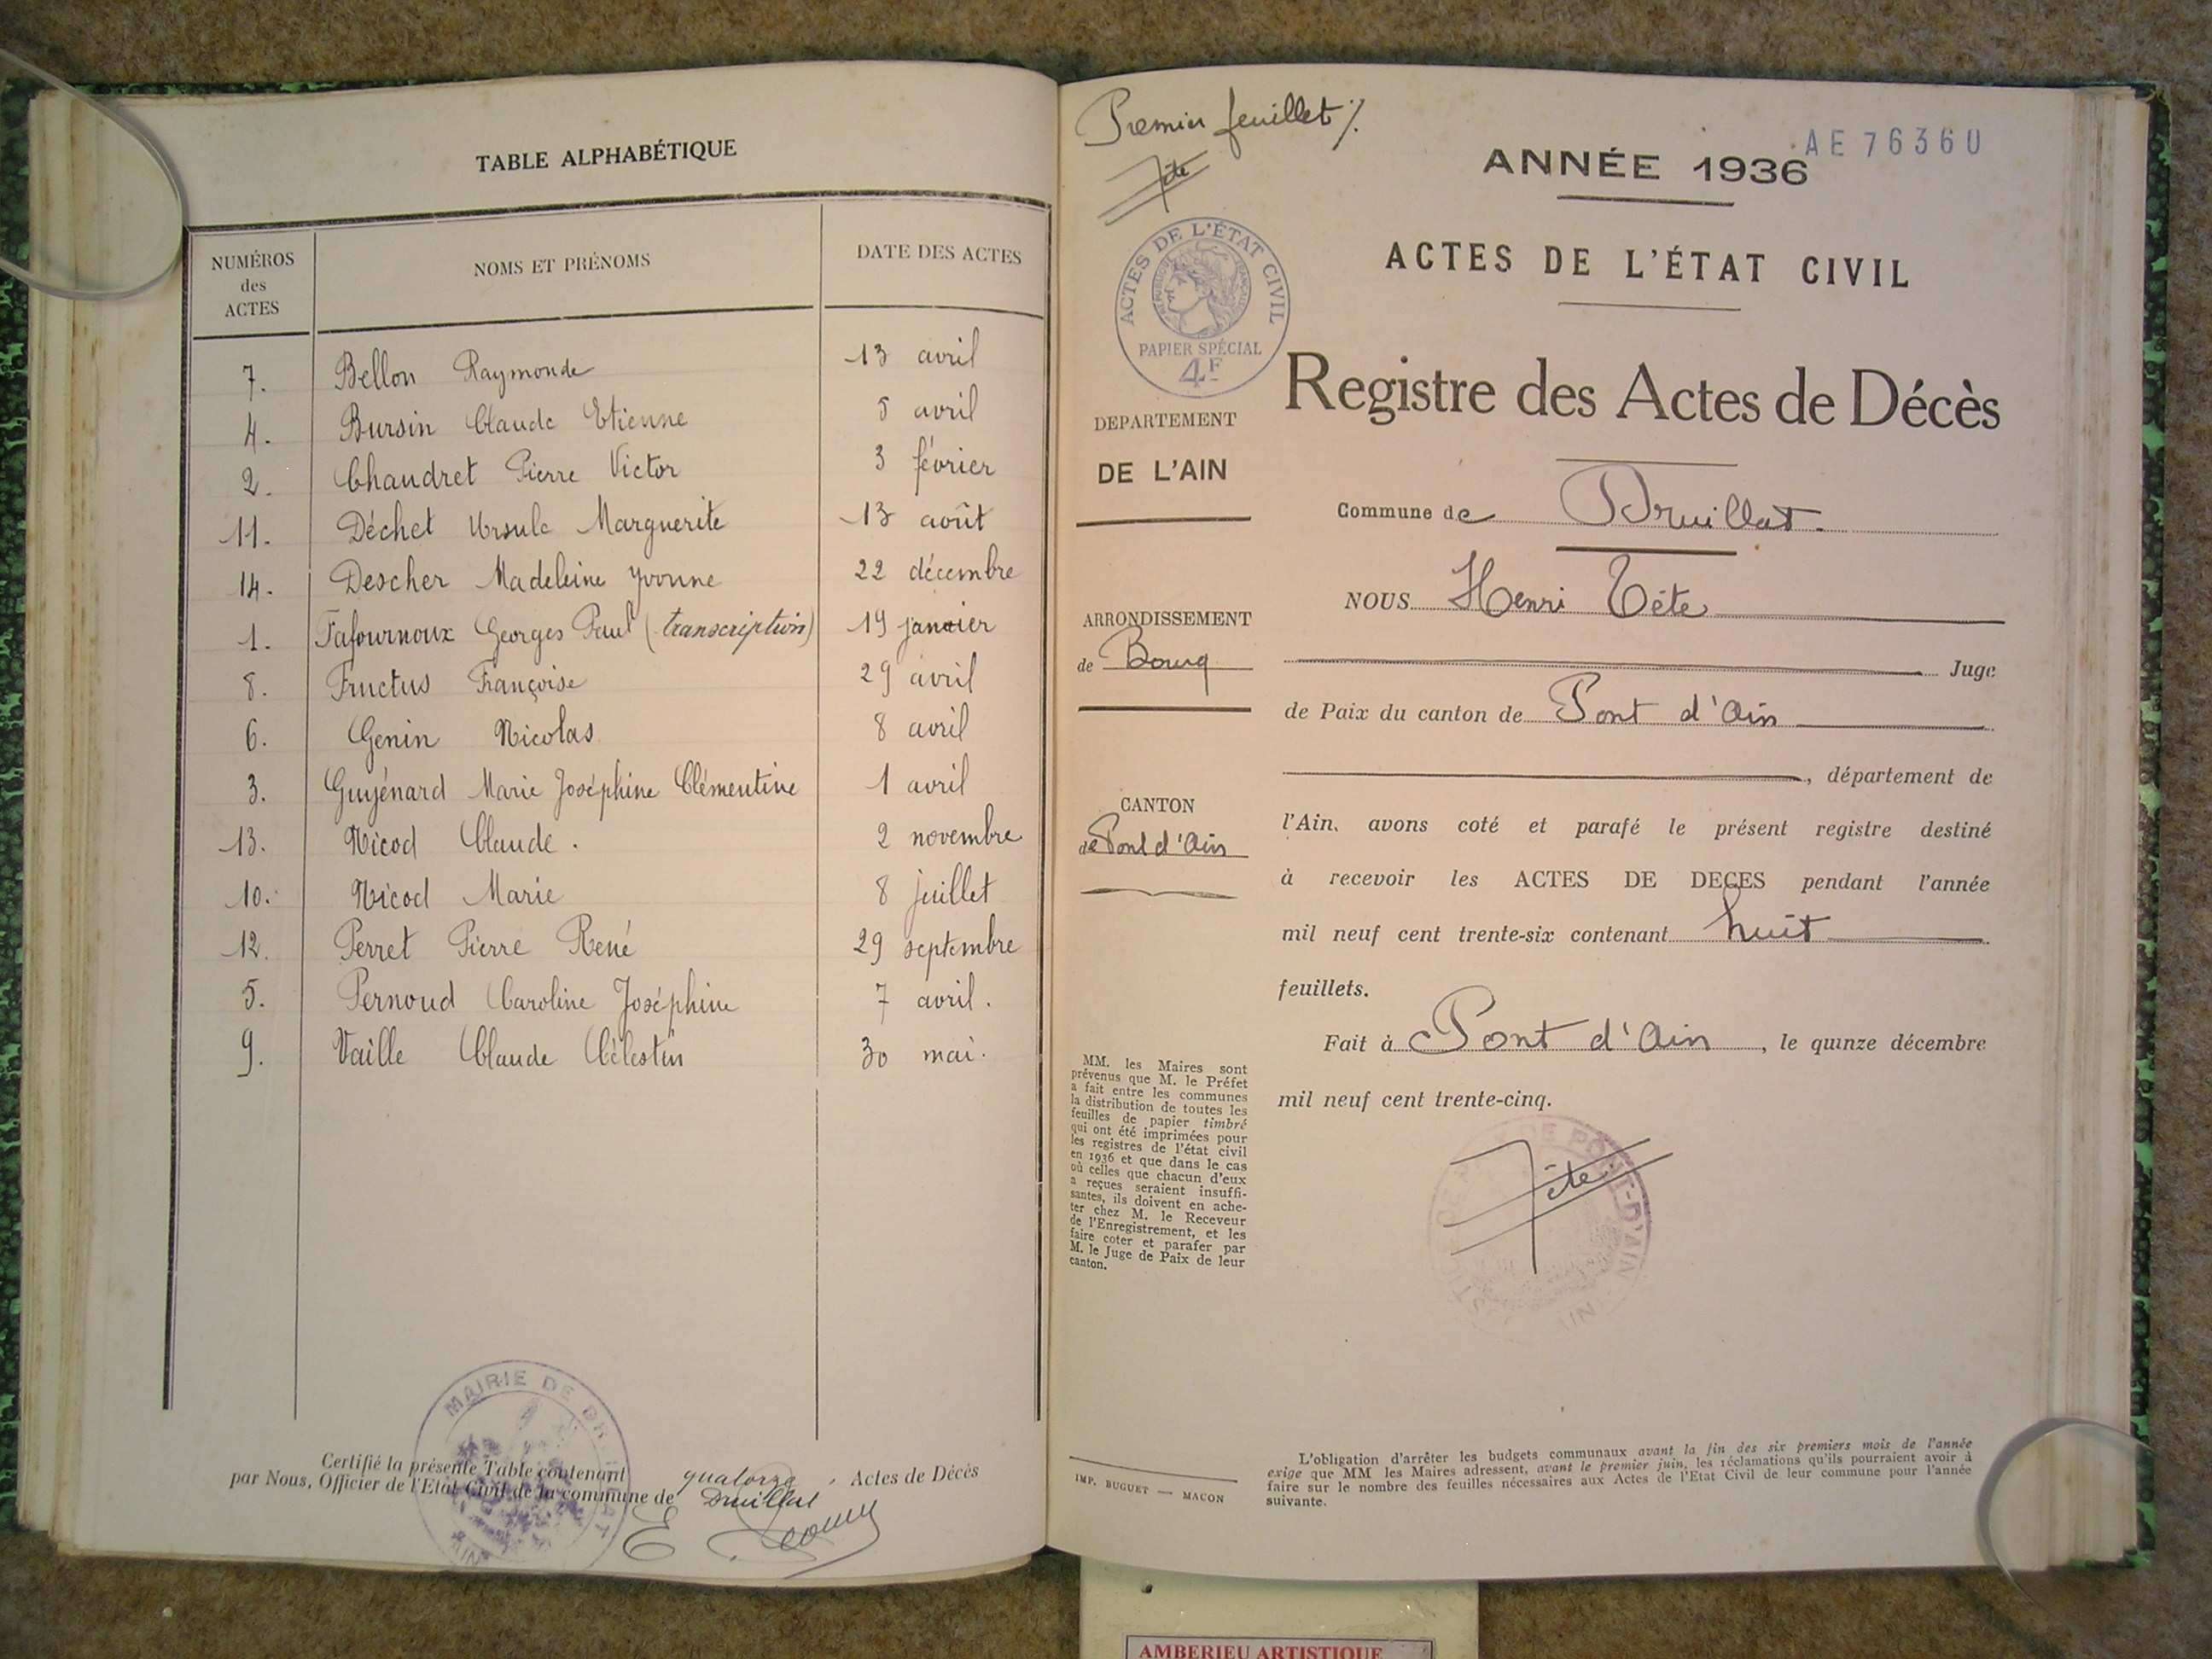 TABLE ALPHABÉTIQUE
NUMÉROS des ACTES NOMS ET PRÉNOMS DATE DES ACTES
7. Bellon Raymonde 13 avril
4. Bursin Claude Etienne 5 avril
2. Chaudret Pierre Victor 3 février
11. Déchet Ursule Marguerite 13 août
14. Descher Madeleine Yvonne 22 décembre
1. Fafournoux Georges Paul (transcription) 19 janvier
8. Fructus Françoise 29 avril
6. Genin Nicolas 8 avril
3. Guyénard Marie Joséphine Clémentine 1 avril
13. Nicod Claude. 2 novembre
10. Nicod Marie 8 juillet
12. Perret Pierre René 29 septembre
5. Pernoud Caroline Joséphine 7 avril.
9. Vaille Claude Célestin 30 mai.
Certifié la présente Table contenant quatorze Actes de Décès
par Nous, Officier de l'Etat Civil de la commune de Druillat
MAIRIE DE
Premier feuillet
Tête
AE 76360
ANNÉE 1936
ACTES DE L'ÉTAT CIVIL
ACTES DE L'ÉTAT CIVIL
RÉPUBLIQUE FRANÇAISE
PAPIER SPÉCIAL
4F
Registre des Actes de Décès
DEPARTEMENT
DE L'AIN
Commune de Druillat.
NOUS Henri Tête
ARRONDISSEMENT
de Bourg
Juge
de Paix du canton de Pont d'Ain
, département de
CANTON
de Pont d'Ain
l'Ain, avons coté et parafé le présent registre destiné
à recevoir les ACTES DE DECES pendant l'année
mil neuf cent trente-six contenant huit
feuillets.
Fait à Pont d'Ain, le quinze décembre
mil neuf cent trente-cinq.
Tête
DE PONT-D'AIN
MM. les Maires sont
prévenus que M. le Préfet
a fait entre les communes
la distribution de toutes les
feuilles de papier timbré
qui ont été imprimées pour
les registres de l'état civil
en 1936 et que dans le cas
où celles que chacun d'eux
a reçues seraient insuffi-
santes, ils doivent en ache-
ter chez M. le Receveur
de l'Enregistrement, et les
faire coter et parafer par
M. le Juge de Paix de leur
canton.
IMP. BUGUET — MACON
L'obligation d'arrêter les budgets communaux avant la fin des six premiers mois de l'année
exige que MM les Maires adressent, avant le premier juin, les réclamations qu'ils pourraient avoir à
faire sur le nombre des feuilles nécessaires aux Actes de l'Etat Civil de leur commune pour l'année
suivante.
AMBERIEU ARTISTIQUE